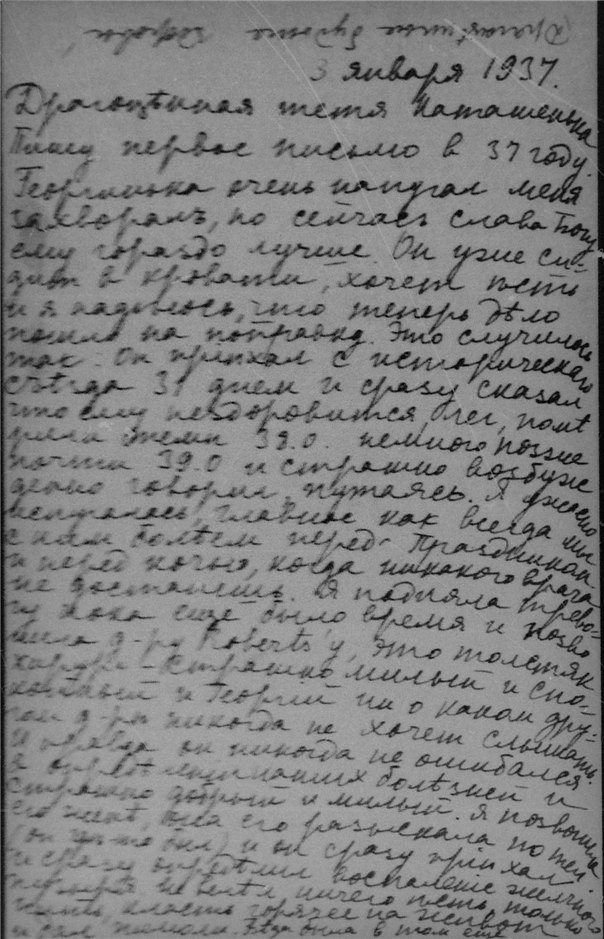 Драгоцѣнные будьте здоровы,
3 января 1937.
Драгоцѣнная тетя Наташенька
Пишу первое письмо в 37 году.
Георгинька очень напугал меня
захворалъ, но сейчасъ слава Богу
ему гораздо лучше. Он уже си-
дит в кровати, хочет ѣсть
и я надѣюсь, что теперь дѣло
пошло на поправку. Это случилось
так: Он приѣхал с историческаго
съѣзда 31 днем и сразу сказал
что ему нездоровится, лег, помѣ
рили темп 38.0. немного позже
почти 39.0 и страшно возбуж
денно говорил, путаясь. Я ужасно
испугалась, главное как всегда мы
с ним болѣем перед Праздникам
и перед ночью, когда никакого врача
не достанешь. Я подняла трево-
гу пока еще было время и позво
нила д-ру Roberts'у, это толстяк
хирург - страшно милый и спо-
койный и Георгий ни о каком дру-
гом д-рѣ никогда не хочет слышать.
И правда он никогда не ошибался
в опредѣлении наших болѣзней и
страшно добрый и милый. Я позвонила
его женѣ, она его разыскала по тел.
(он гдѣ-то был) и он сразу приѣхал
и сразу опредѣлил воспаленіе желчного
пузыря не велѣл ничего ѣсть, только
пить, класть горячее на живот
и дал пилюли. Бѣда была в том еще